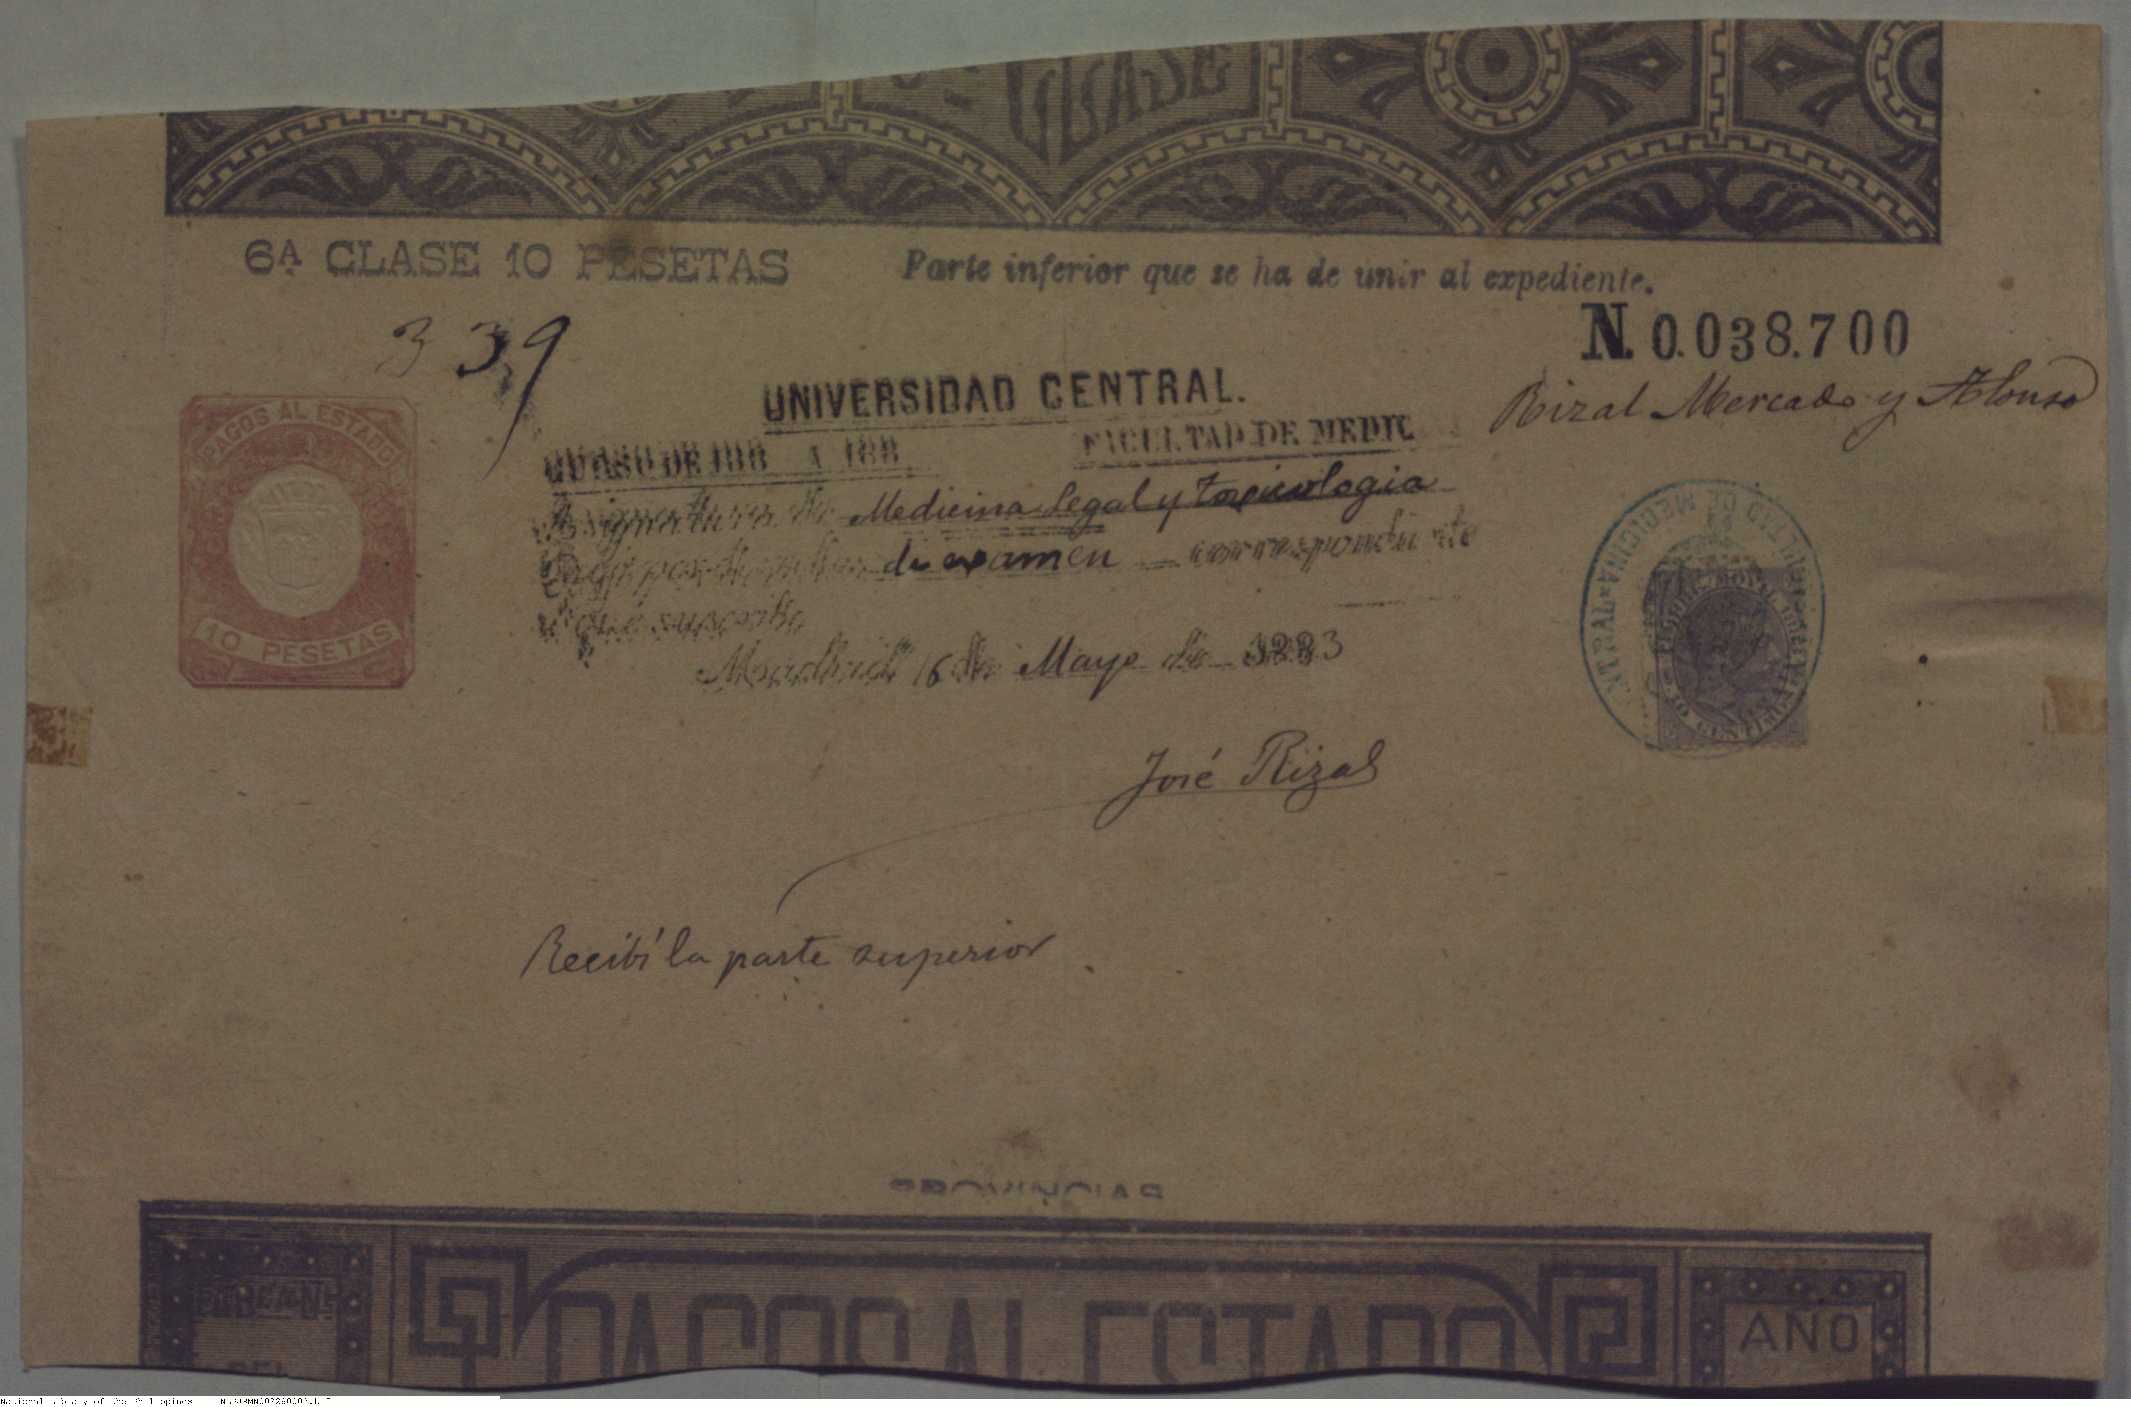 CLASE
6A CLASE 10 PESETAS
Parte inferior que se ha de unir al expediente.
N. 0.038.700
339
Rizal Mercado y Alonso
UNIVERSIDAD CENTRAL.
CURSO DE 188 A 188 FACULTAD DE MEDIC
Asignatura de Medicina Legal y Toxicologia
de examen correspondiente
que suscribe
Madrid 16 de Mayo de 1883
PAGOS AL ESTADO
10 PESETAS
NTRAL * MEDICINA
10
José Rizal
Recibí la parte superior
PROVINCIAS
PAGOS AL ESTADO
AÑO
National Library of the Philippines